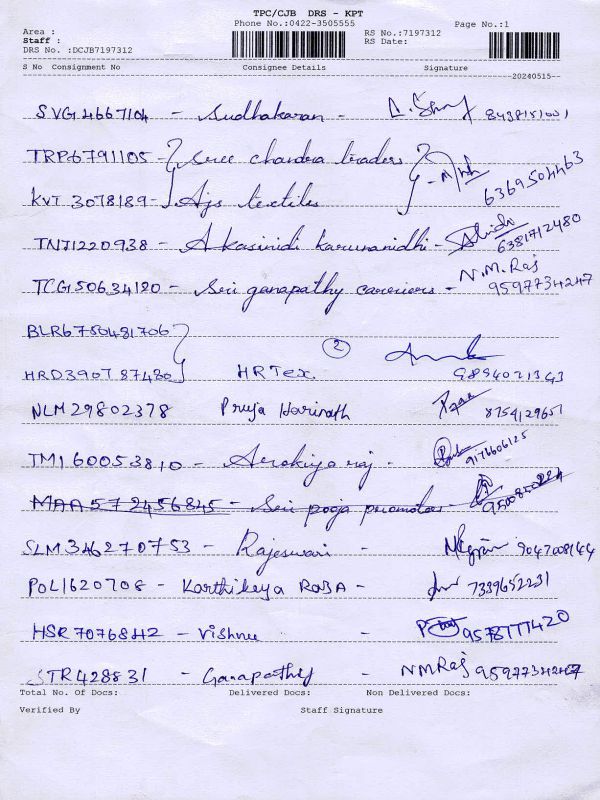 TPC/CJB DRS - KPT
Phone No.:0422-3505555
Page No.:1
Area :
Staff :
DRS No. :DCJB7197312
RS No.:7197312
RS Date:
S No Consignment No Consignee Details Signature
20240515
SVG4667104 - Sudhakaran - 8438151001
TRP6791105 - Sree chandra traders
KVT 3078189 - Ajs textiles 6369504463
TN71220938 - Akasinidi karunanidhi - 6381712480
TCG50634120 - Seri ganapathy carriers - N.M.Raj 9597734247
BLR6750481706
HRD3907 87480 HRTex. 2 9894021343
NLM29802378 Pruja Harinath 8754129651
TM160053810 - Arokiya raj - 9176606125
MAA572456845 - Seri pooja promotors -
SLM346270753 - Rajeswari - 9047008144
POL1620708 - Karthikeya RABA - 7339652231
HSR7076842 - Vishnu - 9578777420
STR428831 - Ganapathy - NMRaj 9597734247
Total No. Of Docs: Delivered Docs: Non Delivered Docs:
Verified By Staff Signature